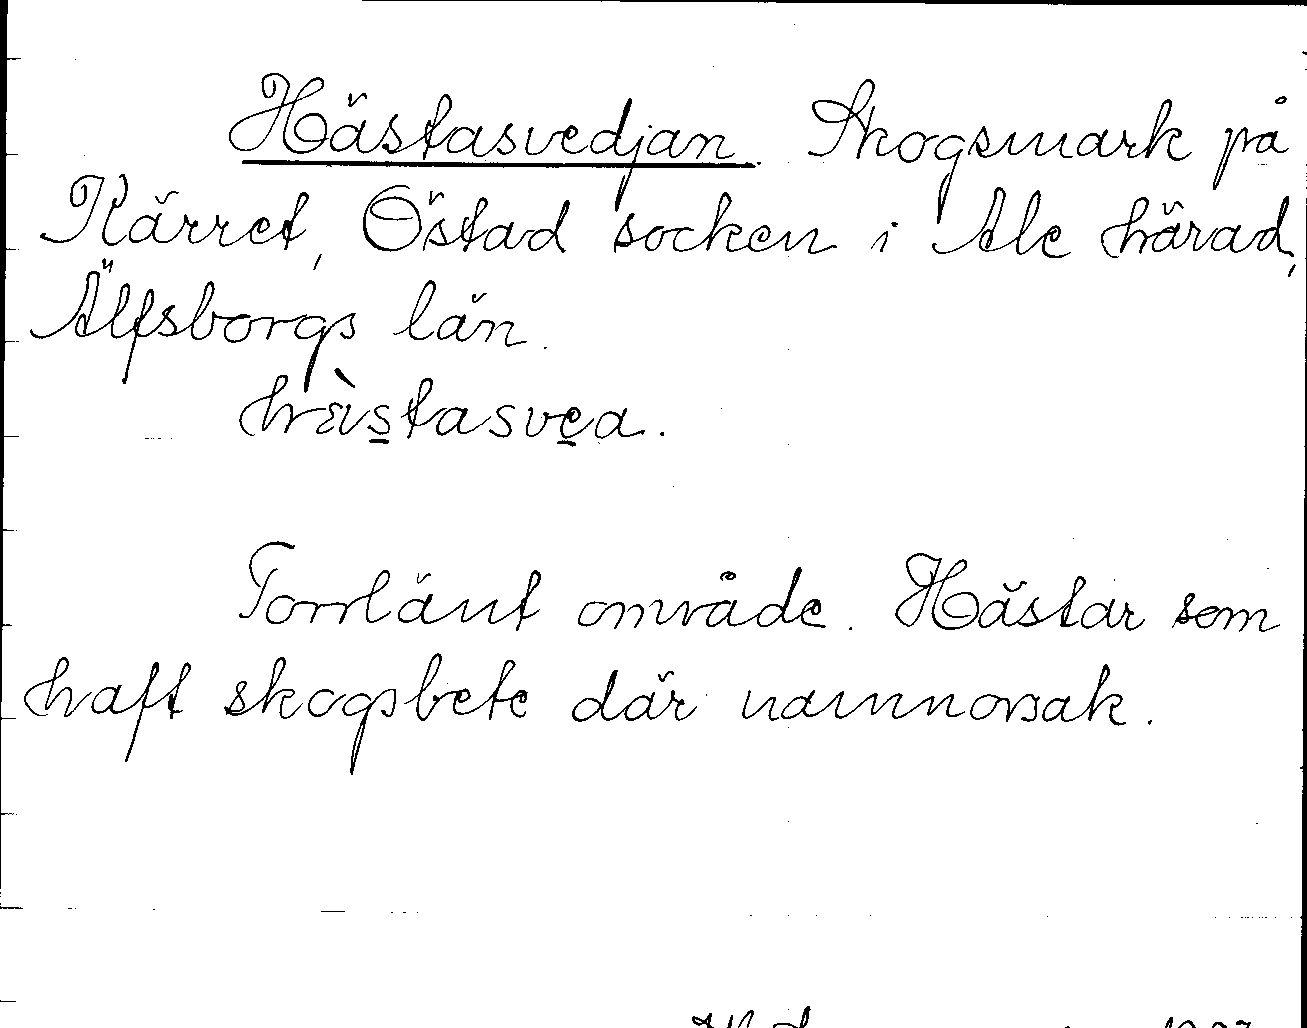 Hästasvedjan. Skogsmark på
Kärret, Östad socken i Ale härad,
Älfsborgs län.
hästasvea.
Torrlänt område. Hästar som
haft skogsbete där namnorsak.